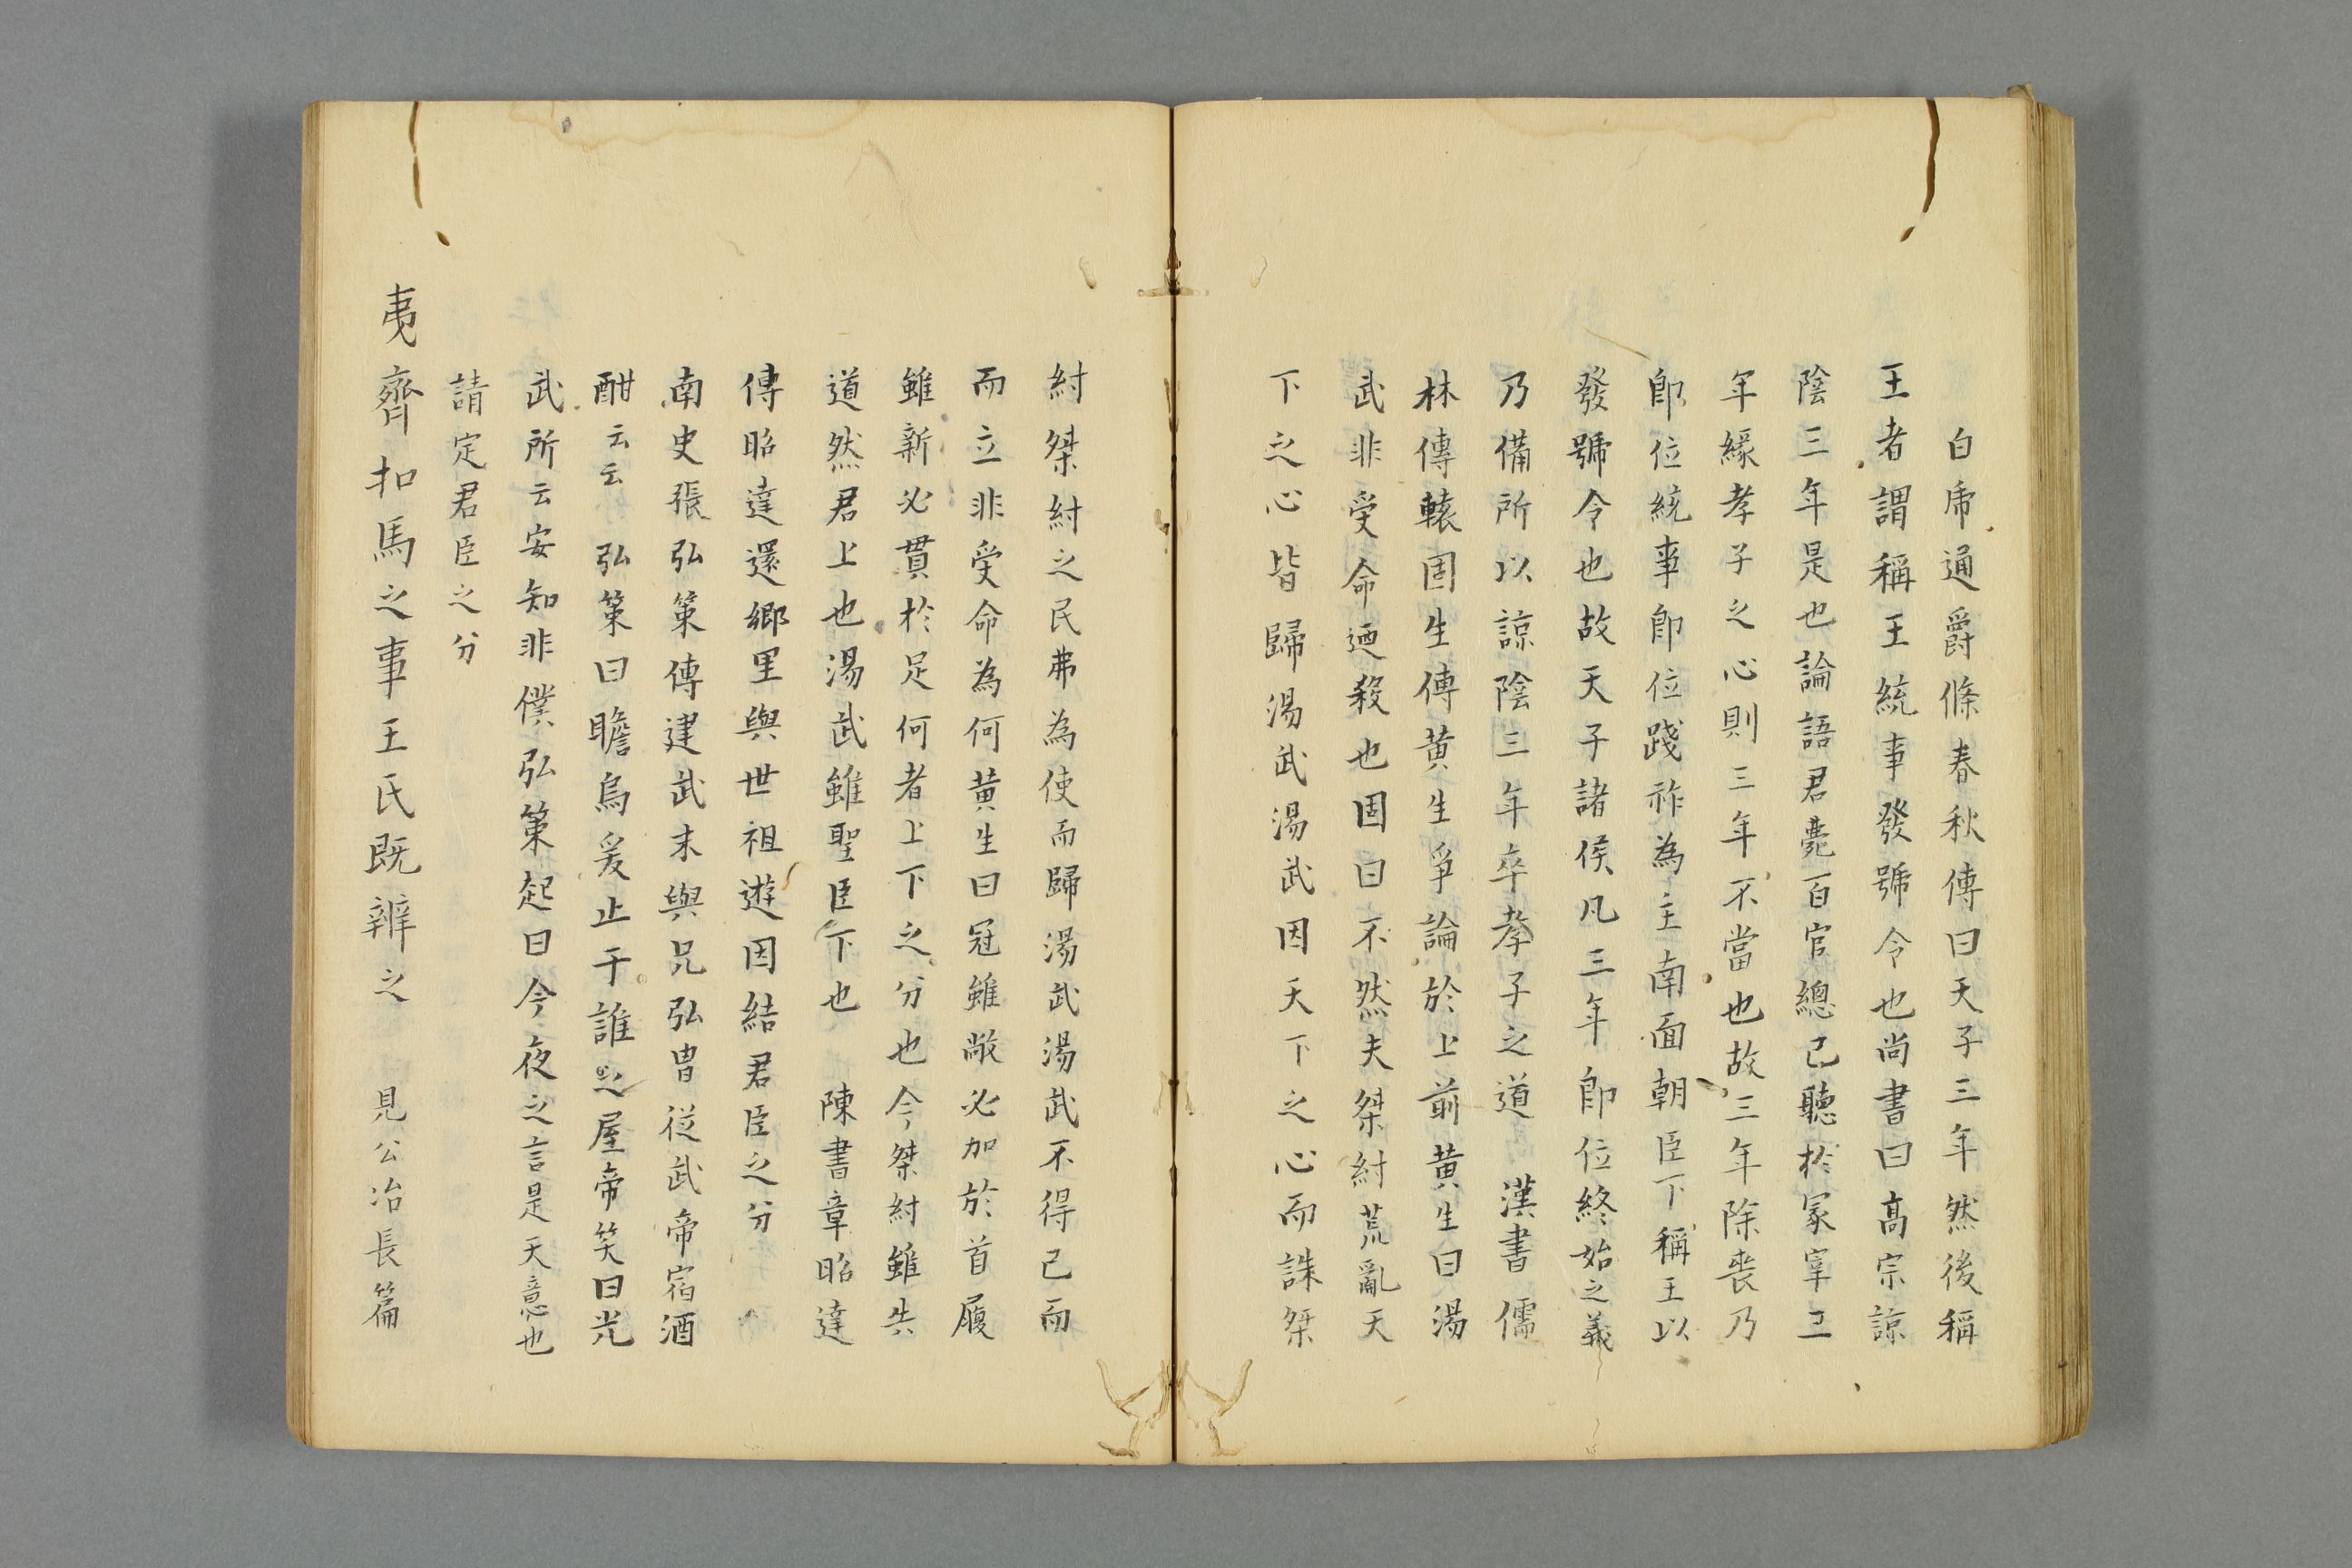 白虎通爵條春秋傳曰天子三年然後稱
王者謂稱王統事發號令也尚書曰高宗諒
陰三年是也論語君薨百官總己聽於冢宰三
年緣孝子之心則三年不當也故三年除喪乃
即位統事即位踐祚為主南面朝臣下稱王以
發號令也故天子諸侯凡三年即位終始之義
乃備所以諒陰三年卒孝子之道 漢書儒
林傳轅固生傳黄生爭論於上前黄生曰湯
武非受命廼殺也固曰不然夫桀紂荒亂天
下之心皆歸湯武湯武因天下之心而誅桀
紂桀紂之民弗為使而歸湯武湯武不得已而
而立非受命為何黄生曰冠雖敝必加於首履
雖新必貫於足何者上下之分也今桀紂雖失
道然君上也湯武雖聖臣下也 陳書章昭達
傳昭達還鄉里與世祖遊因結君臣之分
南史張弘策傳建武末與兄弘胄從武帝宿酒
酣云云弘策曰瞻烏爰止于誰之屋帝笑曰光
武所云安知非僕弘策起曰今夜之言是天意也
請定君臣之分
夷齊扣馬之事王氏既辨之 見公冶長篇